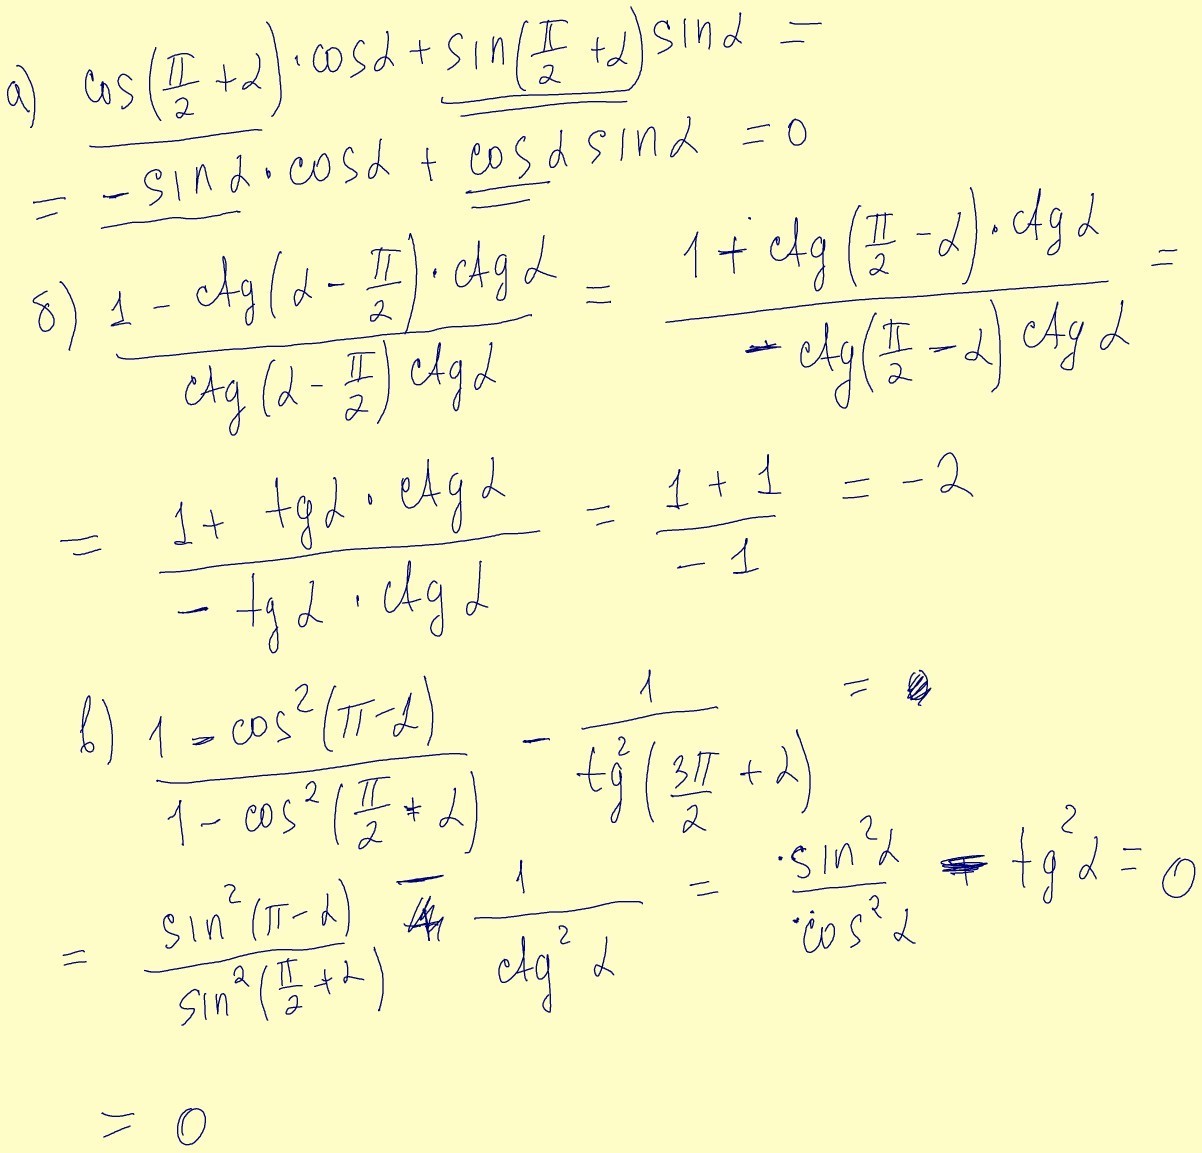 а) cos(π/2 + α)·cosα + sin(π/2 + α) sinα =
= -sinα·cosα + cosα sinα = 0
б) (1 - ctg(α - π/2)·ctgα)/(ctg(α - π/2) ctgα) = (1 + ctg(π/2 - α)·ctgα)/(-ctg(π/2 - α) ctgα) =
= (1 + tgα·ctgα)/(-tgα·ctgα) = (1 + 1)/(-1) = -2
в) (1 - cos²(π - α))/(1 - cos²(π/2 + α)) - 1/(tg²(3π/2 + α)) =
= (sin²(π - α))/(sin²(π/2 + α)) - 1/(ctg²α) = (sin²α)/(cos²α) - tg²α = 0
= 0